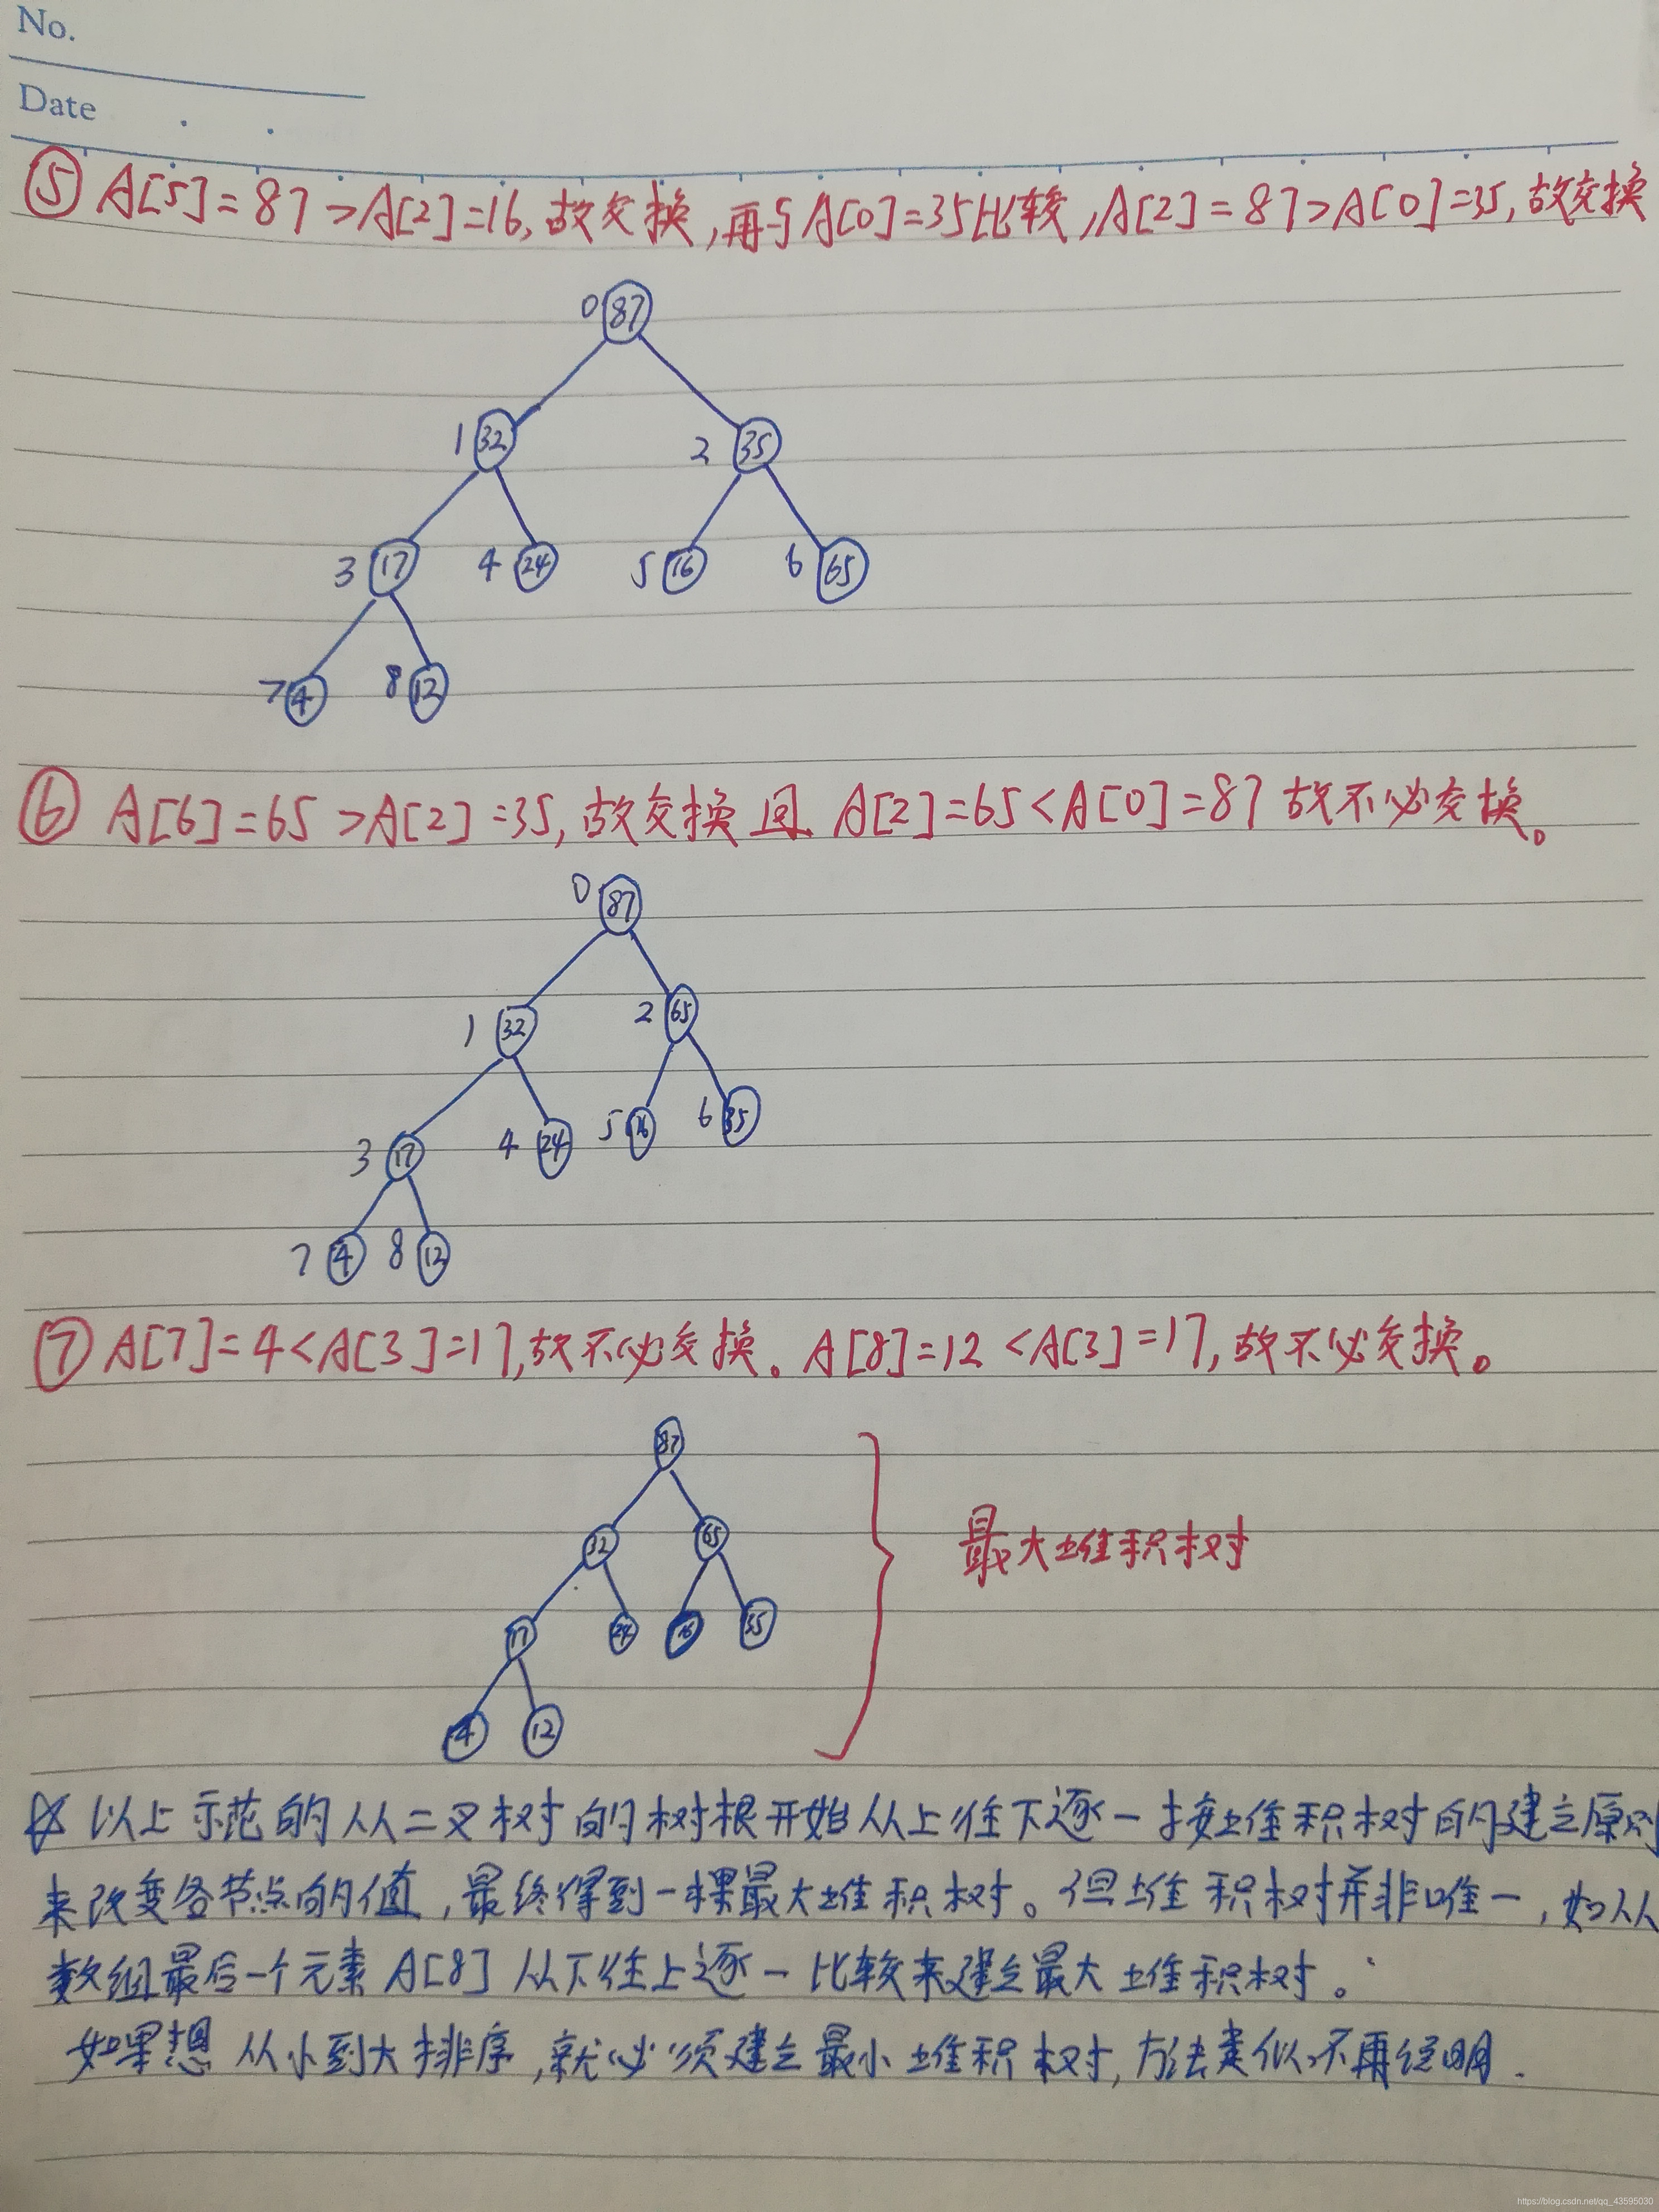 No.
Date
⑤ A[5]=87>A[2]=16,故交换,再与A[0]=35比较,A[2]=87>A[0]=35,故交换
0 87
1 32 2 35
3 17 4 24 5 16 6 65
7 4 8 12
⑥ A[6]=65>A[2]=35,故交换且A[2]=65<A[0]=87故不必交换。
0 87
1 32 2 65
3 17 4 24 5 16 6 35
7 4 8 12
⑦ A[7]=4<A[3]=17,故不必交换。A[8]=12<A[3]=17,故不必交换。
87
32 65
17 24 16 35
4 12
最大堆积树
以上示范的从二叉树的树根开始从上往下逐一按堆积树的建立原则
来改变各节点的值,最终得到一棵最大堆积树。但堆积树并非唯一,如从
数组最后一个元素A[8]从下往上逐一比较来建立最大堆积树。
如果想从小到大排序,就必须建立最小堆积树,方法类似,不再说明.
https://blog.csdn.net/qq_43595030